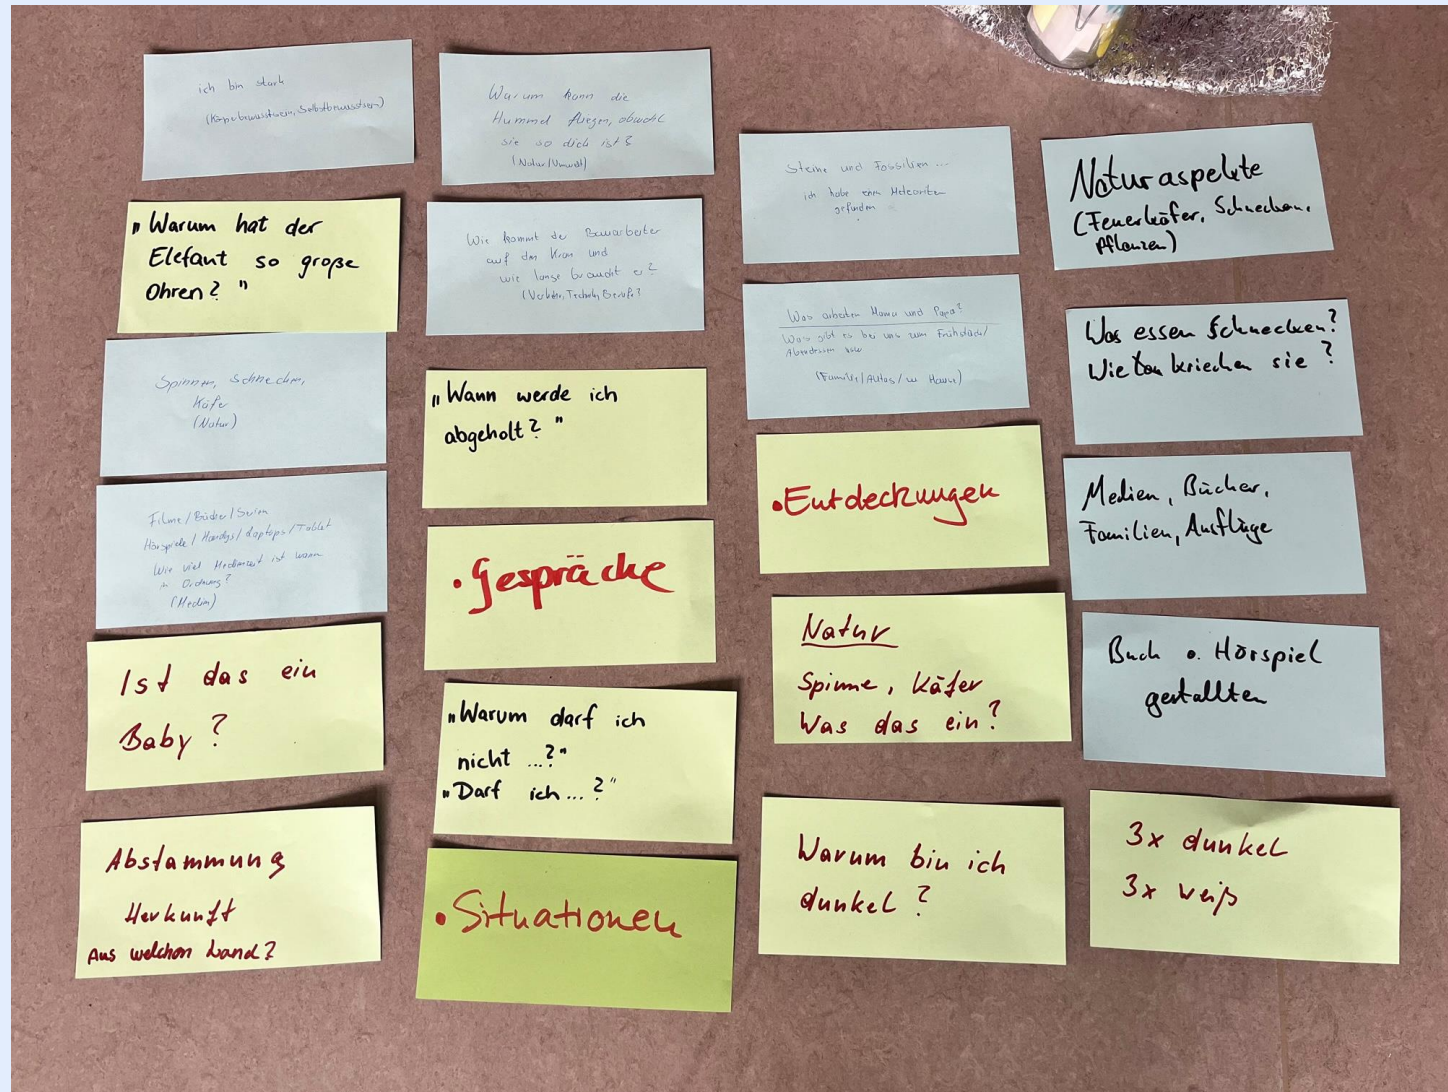 ich bin stark
(Körperbewusstsein, Selbstbewusstsein)
„Warum hat der
Elefant so große
Ohren?"
Spinnen, Schnecken,
Käfer
(Natur)
Filme/Bücher/Serien
Hörspiele/Handys/Laptops/Tablet
Wie viel Medienzeit ist wann
in Ordnung?
(Medien)
Ist das ein
Baby?
Abstammung
Herkunft
Aus welchem Land?
Warum kann die
Hummel fliegen, obwohl
sie so dick ist?
(Natur/Umwelt)
Wie kommt der Bauarbeiter
auf den Kran und
wie lange braucht er?
(Verkehr, Technik, Berufe)
„Wann werde ich
abgeholt?"
• Gespräche
„Warum darf ich
nicht ...?"
„Darf ich ...?"
• Situationen
Steine und Fossilien ...
ich habe einen Meteoriten
gefunden
Was arbeiten Mama und Papa?
Was gibt es bei uns zum Frühstück/
Abendessen
(Familie/Autos/zu Hause)
• Entdeckungen
Natur
Spinne, Käfer
Was das ein?
Warum bin ich
dunkel?
Naturaspekte
(Feuerkäfer, Schnecken,
Pflanzen)
Was essen Schnecken?
Wie kriechen sie?
Medien, Bücher,
Familien, Ausflüge
Buch o. Hörspiel
gestallten
3x dunkel
3x weiß